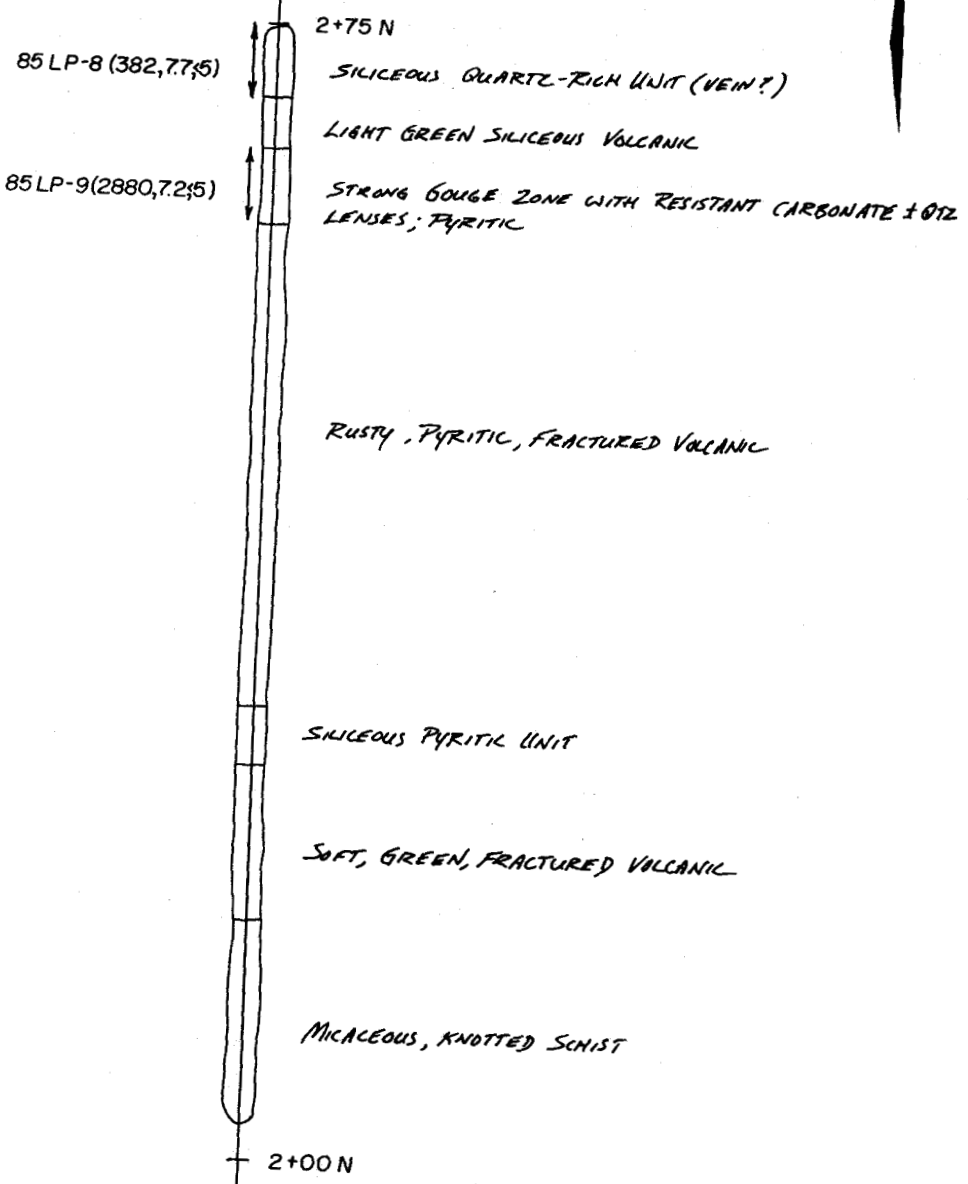 2+75 N
85 LP-8 (382,7.7;5)
SILICEOUS QUARTZ-RICH UNIT (VEIN?)
LIGHT GREEN SILICEOUS VOLCANIC
85 LP-9 (2880,7.2;5)
STRONG GOUGE ZONE WITH RESISTANT CARBONATE ± QTZ
LENSES; PYRITIC
RUSTY, PYRITIC, FRACTURED VOLCANIC
SILICEOUS PYRITIC UNIT
SOFT, GREEN, FRACTURED VOLCANIC
MICACEOUS, KNOTTED SCHIST
2+00 N